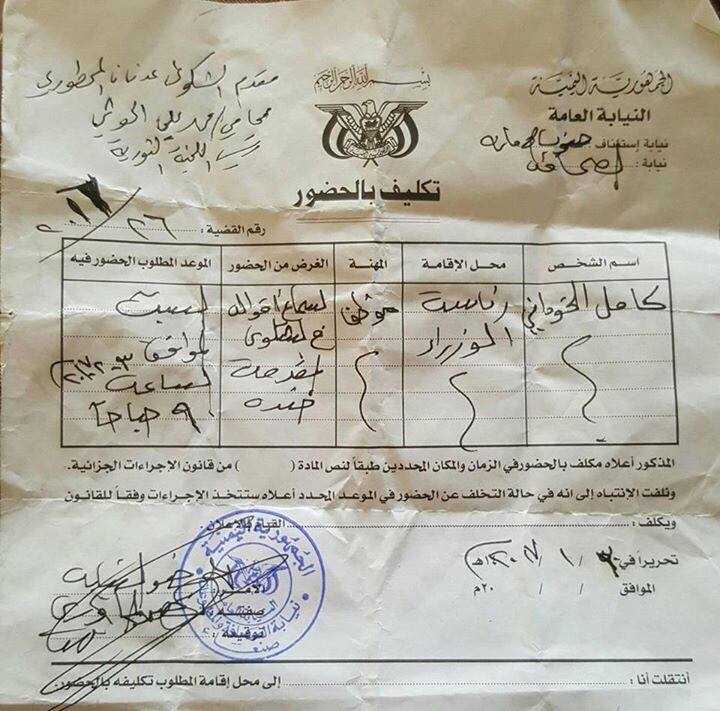 بسم الله الرحمن الرحيم
الجمهورية اليمنية
النيابة العامة
نيابة إستئناف : جنوب الأمانة
نيابة : الصحافة
مقدم الشكوى عدنان المحطوري
محامي / محمد علي الحوثي
رئيس اللجنة الثورية
تكليف بالحضور
رقم القضية : ٢٦ / ٢٠١٦
اسم الشخص
محل الإقامة
المهنة
الغرض من الحضور
الموعد المطلوب الحضور فيه
كامل الخوداني
رئاسة الوزراء
موظف
لسماع أقواله
في الشكوى
المقدمة
ضده
السبت
الموافق
الساعة
٩ صباحاً
المذكور أعلاه مكلف بالحضور في الزمان والمكان المحددين طبقاً لنص المادة ( ) من قانون الإجراءات الجزائية.
ونلفت الإنتباه إلى انه في حالة التخلف عن الحضور في الموعد المحدد أعلاه ستتخذ الإجراءات وفقاً للقانون
ويكلف : القيام بالإعلان.
تحريراً في : / ١ / ٢٠١٧ هـ
الموافق / / ٢٠ م
الآمر
صفته
توقيعه :
الجمهورية اليمنية
النيابة العامة
نيابة الصحافة والمطبوعات
صنعاء
أنتقلت أنا : إلى محل إقامة المطلوب تكليفه بالحضور.